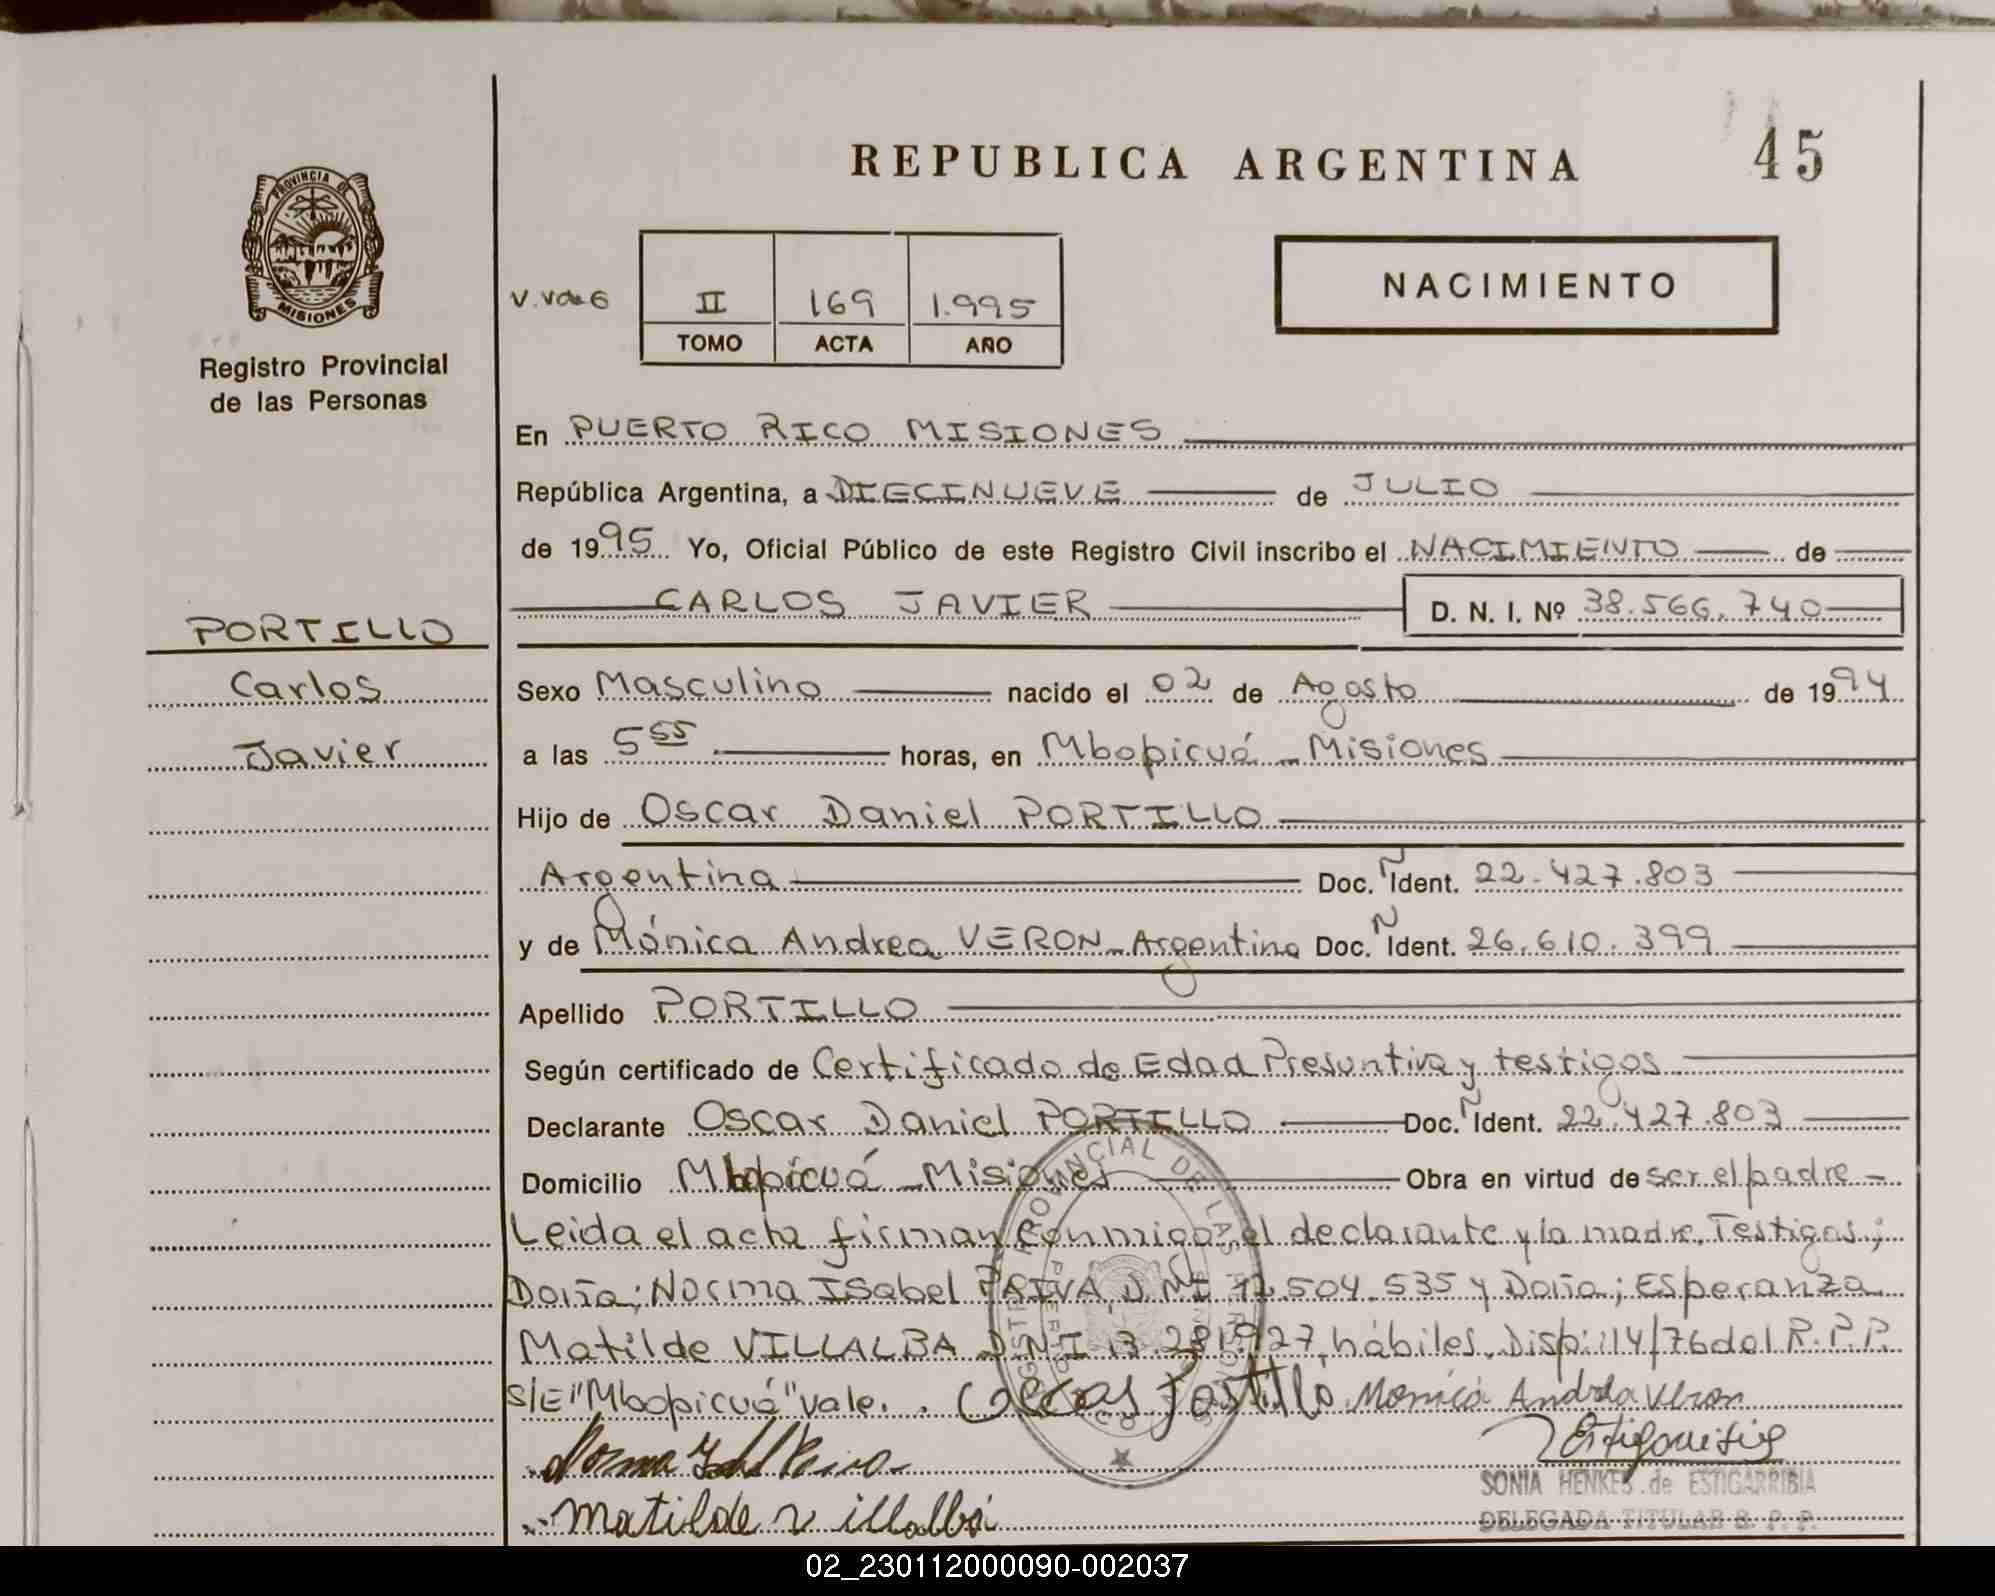 REPUBLICA ARGENTINA
45
PROVINCIA DE
MISIONES
Registro Provincial
de las Personas
NACIMIENTO
II 169 1.995
TOMO ACTA AÑO
En PUERTO RICO MISIONES
República Argentina, a DIECINUEVE de JULIO
de 1995 Yo, Oficial Público de este Registro Civil inscribo el NACIMIENTO de
CARLOS JAVIER D. N. I. Nº 38.566.740
PORTILLO
Carlos
Javier
Sexo Masculino nacido el 02 de Agosto de 1994
a las 5 55 horas, en Mbopicuá - Misiones
Hijo de Oscar Daniel PORTILLO
Argentina Doc. N Ident. 22.427.803
y de Mónica Andrea VERON - Argentina Doc. N Ident. 26.610.399
Apellido PORTILLO
Según certificado de Certificado de Edad Presuntiva y testigos
Declarante Oscar Daniel PORTILLO Doc. N Ident. 22.427.803
Domicilio Mbopicuá - Misiones Obra en virtud de ser el padre -
Leida el acta firman conmigo el declarante y la madre. Testigos;
Doña; Norma Isabel PAIVA, D.N.I 12.504.535 y Doña; Esperanza
Matilde VILLALBA D.N.I 13.281.927, hábiles. Disp: 114/76 del R.P.P.
S/E "Mbopicuá" vale.
Mónica Andrea Veron
Matilde Villalba
SONIA HENKES de ESTIGARRIBIA
DELEGADA TITULAR R. P. P.
02_230112000090-002037